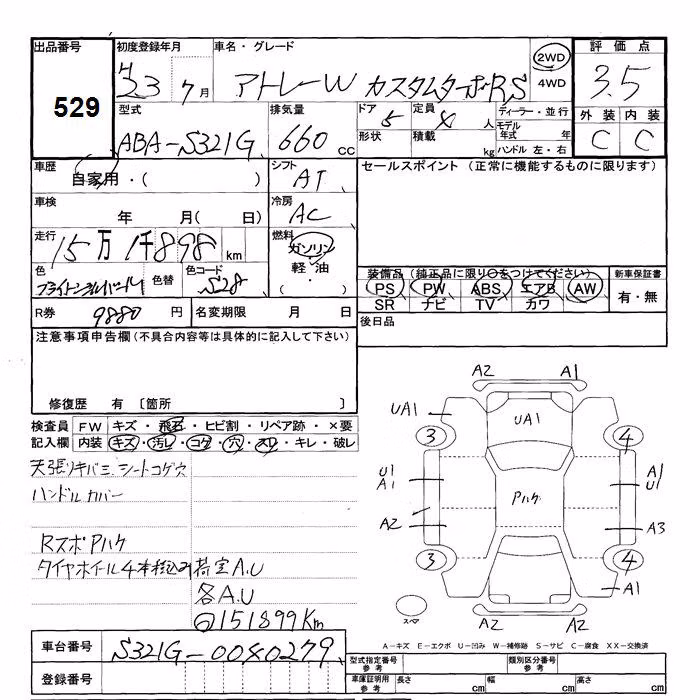 出品番号
529
初度登録年月
H23 年 7 月
車名・グレード
アトレーW カスタムターボRS
2WD
4WD
評価点
3.5
外装 内装
C C
型式
ABA-S321G
排気量
660 cc
ドア 5
定員 4 人
形状
積載 kg
ディーラー・並行
モデル年式 年
ハンドル 左・右
車歴
自家用・( )
シフト
AT
セールスポイント (正常に機能するものに限ります)
車検
年 月( 日)
冷房
AC
走行
15万1千898 km
燃料
ガソリン
軽油
( ・ )
色
色替
色コード
S28
装備品(純正品に限り○をつけてください)
PS PW ABS エアB AW
SR ナビ TV カワ
新車保証書
有・無
R券 9880 円
名変期限 月 日
後日品
注意事項申告欄(不具合内容等は具体的に記入して下さい)
修復歴 有 〔箇所 〕
検査員 FW キズ・飛石・ヒビ割・リペア跡・×要
記入欄 内装 キズ・汚レ・コゲ・穴・スレ・キレ・破レ
天張りキバミ シートコゲ穴
ハンドルカバー
RスポPハゲ
タイヤホイール4本積込み荷室A.U
各A.U
151899Km
A2 A1
UA1 UA1
3 4
U1 A1
A1 Pハゲ U1
A2 A3
3 4
A1
スペア A2 A2
A-キズ E-エクボ U-凹み W-補修跡 S-サビ C-腐食 XX-交換済
車台番号 S321G-0040279
登録番号
型式指定番号 参考
類別区分番号 参考
車庫証明用 参考
長さ cm 幅 cm 高さ cm